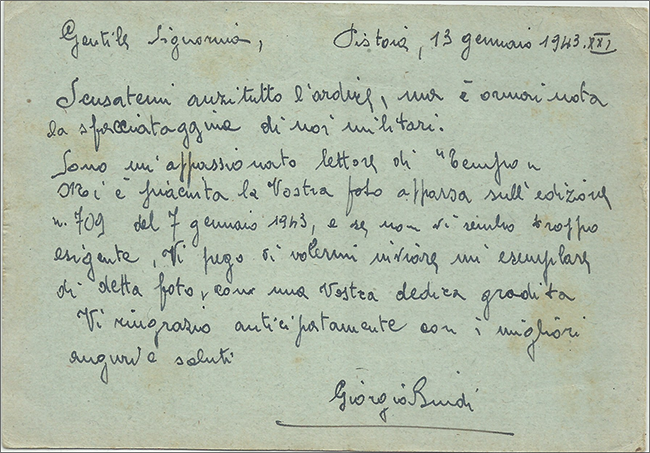 Gentile Signorina, Pistoia, 13 gennaio 1943.XXI
Scusatemi anzitutto l'ardire, ma è ormai nota
la sfacciataggine di noi militari.
Sono un'appassionato lettore di "Tempo"
Mi è piaciuta la Vostra foto apparsa sull'edizione
n. 709 del 7 gennaio 1943, e se non vi sembro troppo
esigente, Vi prego di volermi inviare un esemplare
di detta foto, con una Vostra dedica gradita
Vi ringrazio anticipatamente con i migliori
auguri e saluti
Giorgio